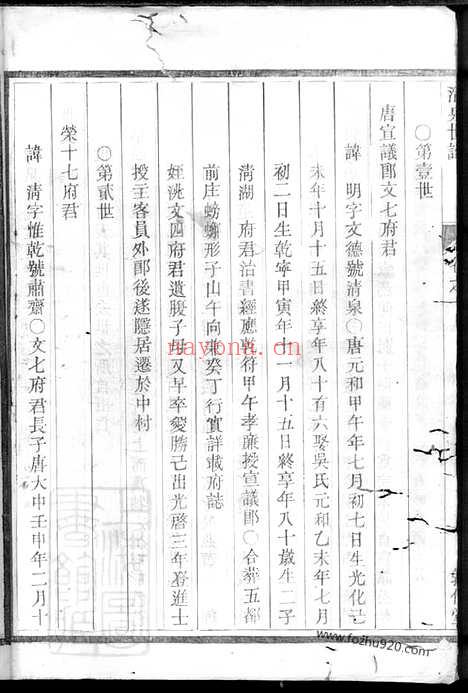 清泉世譜
○第壹世
唐宣議郎文七府君
諱 明字文德號清泉○唐元和甲午年七月初七日生光化己
未年十月十五日終享年八十有六娶吳氏元和乙未年七月
初二日生乾寧甲寅年十一月十五日終享年八十歲生二子
淸 湖 府君治書經應乾符甲午孝廉授宣議郎○合葬五都
前庄螃蠏形子山午向兼癸丁行實詳載府誌
姪洮文四府君遺腹子母又早卒愛勝己出光啓三年登進士
授主客員外郎後遂隱居遷於中村
○第貳世
榮十七府君
諱 淸字惟乾號肅齋○文七府君長子唐大中壬申年二月十
nayona.cn
www.fozhu920.com